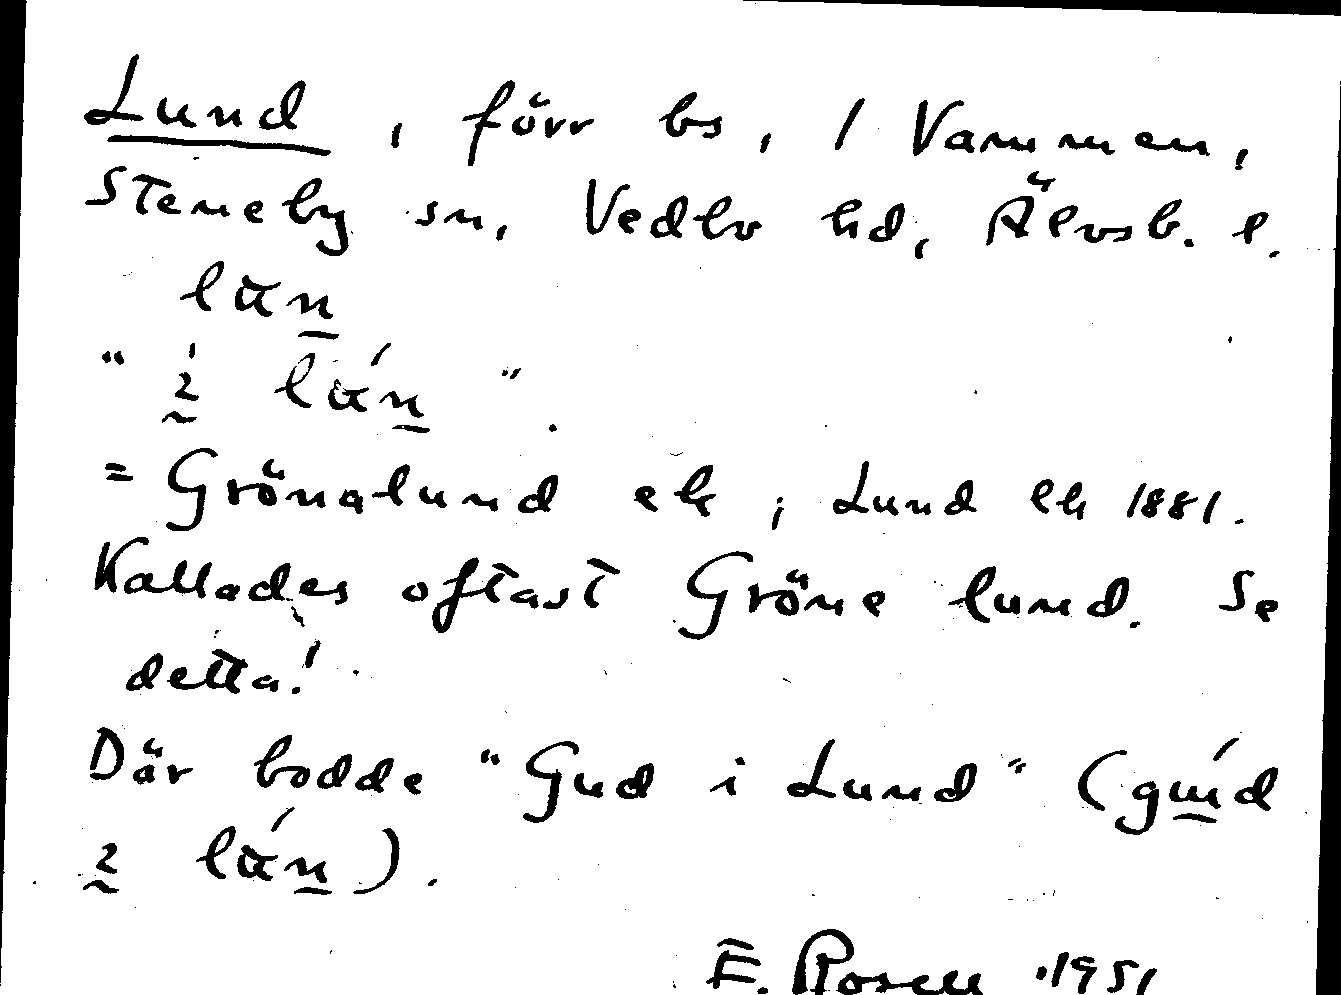 Lund, förr bs, / Vammen,
Steneby sn, Vedbo hd, Älvsb. l.
lun
" i lún ".
= Grönalund ek ; Lund Ek 1881.
Kallades oftast Gröne lund. Se
detta!
Där bodde "Gud i Lund" (gud
i lún).
E. Rosell 1951